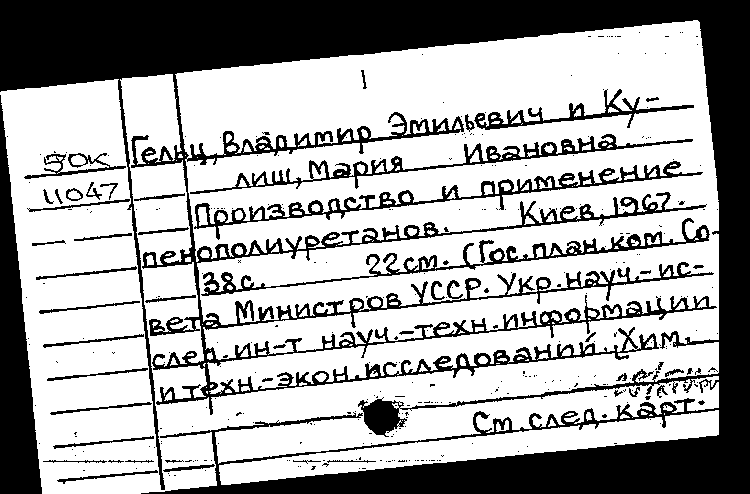 1
Гельц, Владимир Эмильевич и Ку-
50К
лиш, Мария Ивановна.
11047
Производство и применение
пенополиуретанов. Киев, 1967.
38с. 22см. (Гос.план.ком. Со-
вета Министров УССР. Укр.науч.-ис-
след.ин-т науч.-техн.информации
и техн.-экон.исследований. Хим.
См.след.карт.